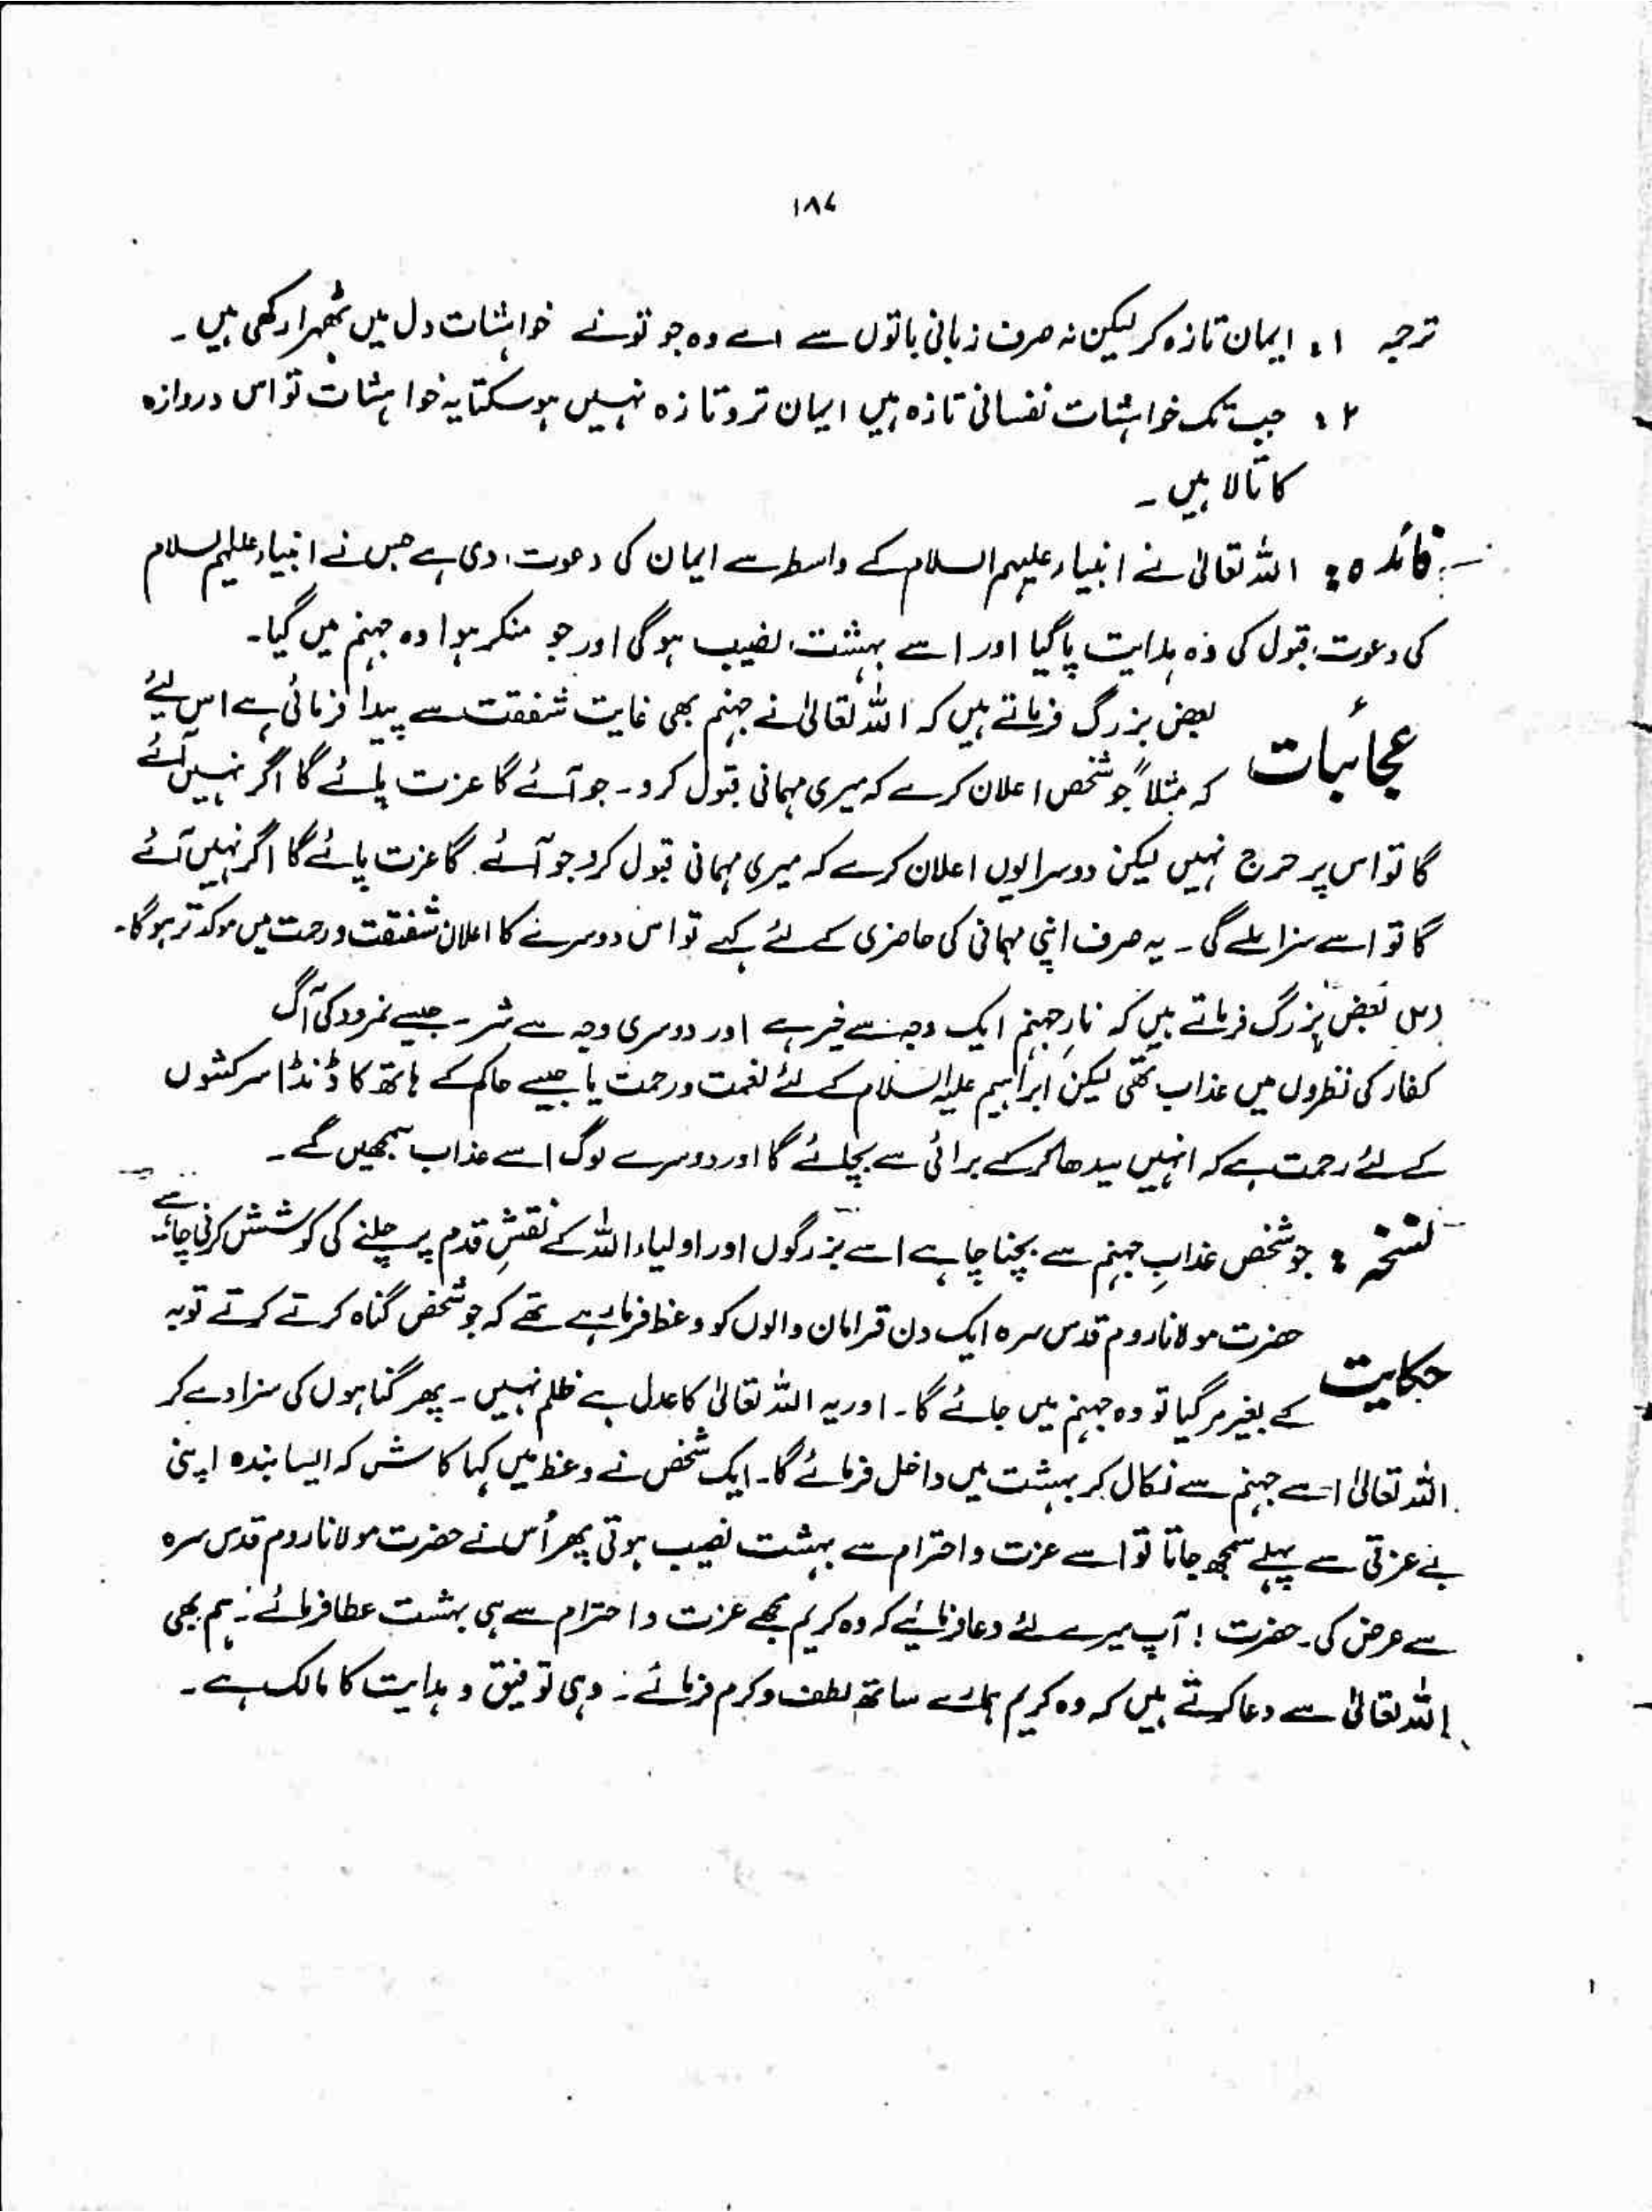 ۱۸۷
ترجمہ ۱: ایمان تازہ کر لیکن نہ صرف زبانی باتوں سے اے وہ جو تو نے خواہشات دل میں ٹھہرا رکھی ہیں۔
۲: جب تک خواہشات نفسانی تازہ ہیں ایمان تروتازہ نہیں ہوسکتا یہ خواہشات تو اس دروازہ
کا تالا ہیں۔
فائدہ: اللہ تعالیٰ نے انبیاء علیہم السلام کے واسطہ سے ایمان کی دعوت دی ہے جس نے انبیاء علیہم السلام
کی دعوت قبول کی وہ ہدایت پا گیا اور اسے بہشت نصیب ہوگی اور جو منکر ہوا وہ جہنم میں گیا۔
عجائبات بعض بزرگ فرماتے ہیں کہ اللہ تعالیٰ نے جہنم بھی غایت شفقت سے پیدا فرمائی ہے اس لیئے
کہ مثلاً جو شخص اعلان کرے کہ میری مہمانی قبول کرو۔ جو آئے گا عزت پائے گا اگر نہیں آئے
گا تو اس پر حرج نہیں لیکن دوسرا یوں اعلان کرے کہ میری مہمانی قبول کرو جو آئے گا عزت پائے گا اگر نہیں آئے
گا تو اسے سزا ملے گی۔ یہ صرف اپنی مہمانی کی حاضری کے لئے کہے تو اس دوسرے کا اعلان شفقت و رحمت میں موکد تر ہوگا۔
بعض بزرگ فرماتے ہیں کہ نارِ جہنم ایک وجہ سے خیر ہے اور دوسری وجہ سے شر۔ جیسے نمرود کی آگ
کفار کی نظروں میں عذاب تھی لیکن ابراہیم علیہ السلام کے لئے نعمت و رحمت یا جیسے حاکم کے ہاتھ کا ڈنڈا سرکشوں
کے لئے رحمت ہے کہ انہیں سیدھا کرکے برائی سے بچائے گا اور دوسرے لوگ اسے عذاب سمجھیں گے۔
نسخہ: جو شخص عذابِ جہنم سے بچنا چاہے اسے بزرگوں اور اولیاء اللہ کے نقشِ قدم پر چلنے کی کوشش کرنی چاہئے
حکایت حضرت مولانا روم قدس سرہ ایک دن قرامان والوں کو وعظ فرما رہے تھے کہ جو شخص گناہ کرتے کرتے توبہ
کے بغیر مر گیا تو وہ جہنم میں جائے گا۔ اور یہ اللہ تعالیٰ کا عدل ہے ظلم نہیں۔ پھر گناہوں کی سزا دے کر
اللہ تعالیٰ اسے جہنم سے نکال کر بہشت میں داخل فرمائے گا۔ ایک شخص نے وعظ میں کہا کاش کہ ایسا بندہ اپنی
بے عزتی سے پہلے سمجھ جاتا تو اسے عزت و احترام سے بہشت نصیب ہوتی پھر اُس نے حضرت مولانا روم قدس سرہ
سے عرض کی۔ حضرت! آپ میرے لئے دعا فرمائیے کہ وہ کریم مجھے عزت و احترام سے ہی بہشت عطا فرمائے۔ ہم بھی
اللہ تعالیٰ سے دعا کرتے ہیں کہ وہ کریم ہمارے ساتھ لطف و کرم فرمائے۔ وہی توفیق و ہدایت کا مالک ہے۔